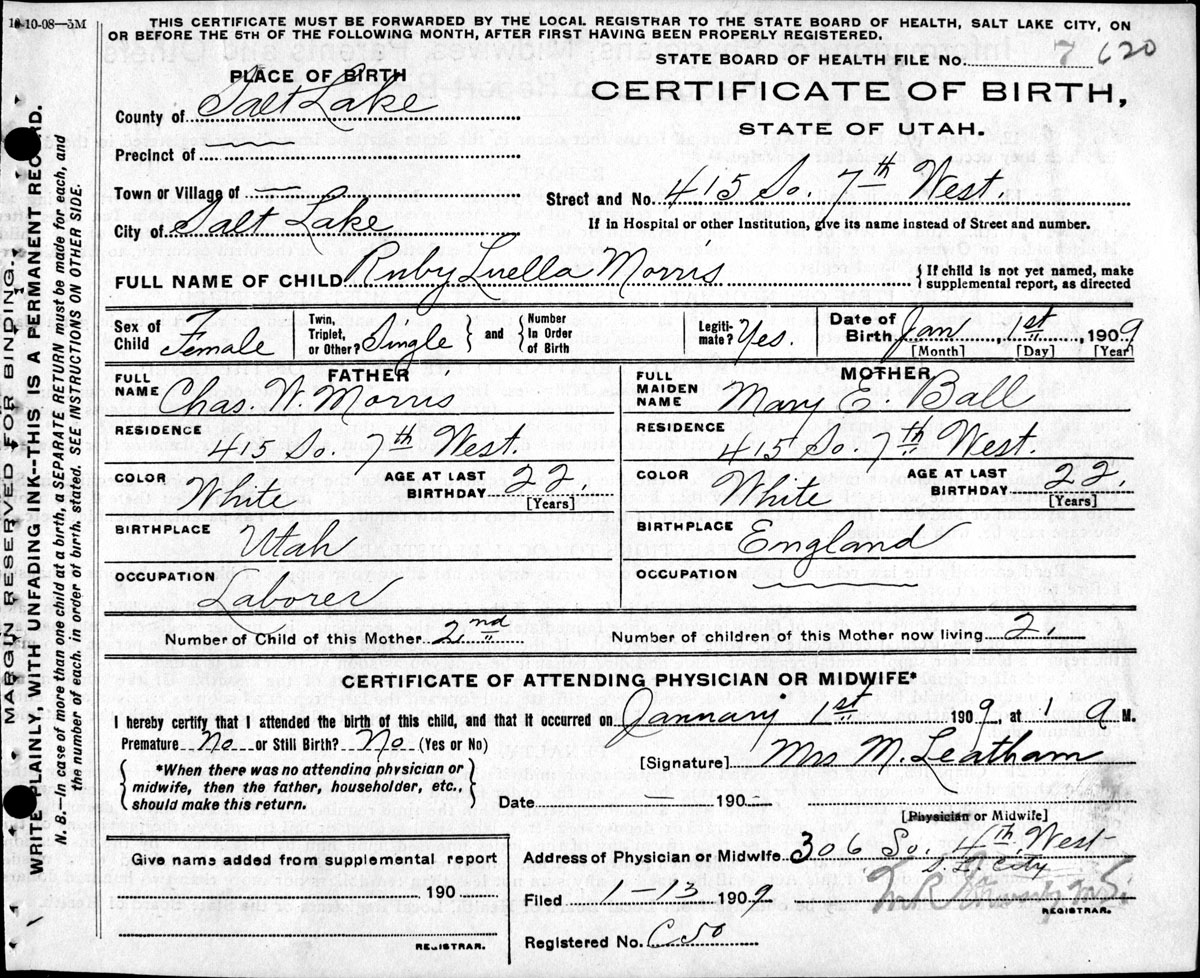 10-10-08—5M
THIS CERTIFICATE MUST BE FORWARDED BY THE LOCAL REGISTRAR TO THE STATE BOARD OF HEALTH, SALT LAKE CITY, ON
OR BEFORE THE 5TH OF THE FOLLOWING MONTH, AFTER FIRST HAVING BEEN PROPERLY REGISTERED.
STATE BOARD OF HEALTH FILE NO. 7 620
PLACE OF BIRTH
CERTIFICATE OF BIRTH,
STATE OF UTAH.
County of Salt Lake
Precinct of
Town or Village of
Street and No. 415 So. 7th West.
City of Salt Lake
If in Hospital or other Institution, give its name instead of Street and number.
FULL NAME OF CHILD Ruby Luella Morris
{If child is not yet named, make
supplemental report, as directed
Sex of Child Female
Twin, Triplet, or Other? Single } and { Number In Order of Birth
Legiti-mate? Yes.
Date of Birth Jan 1st, 1909
[Month] [Day] [Year]
FATHER
FULL NAME Chas. W. Morris
RESIDENCE 415 So. 7th West.
COLOR White AGE AT LAST BIRTHDAY 22. [Years]
BIRTHPLACE Utah
OCCUPATION Laborer
MOTHER
FULL MAIDEN NAME Mary E. Ball
RESIDENCE 415 So. 7th West.
COLOR White AGE AT LAST BIRTHDAY 22. [Years]
BIRTHPLACE England
OCCUPATION
Number of Child of this Mother 2nd Number of children of this Mother now living 2.
CERTIFICATE OF ATTENDING PHYSICIAN OR MIDWIFE*
I hereby certify that I attended the birth of this child, and that it occurred on January 1st 1909, at 1 a M.
Premature No or Still Birth? No (Yes or No)
{ *When there was no attending physician or
midwife, then the father, householder, etc.,
should make this return. }
[Signature] Mrs M. Leatham
Date 190
[Physician or Midwife]
Give name added from supplemental report
190
REGISTRAR.
Address of Physician or Midwife. 306 So. 4th West
S L City
Filed 1-13 1909
REGISTRAR.
Registered No. C50
MARGIN RESERVED FOR BINDING.
WRITE PLAINLY, WITH UNFADING INK--THIS IS A PERMANENT RECORD.
N. B.—In case of more than one child at a birth, a SEPARATE RETURN must be made for each, and
the number of each. in order of birth. stated. SEE INSTRUCTIONS ON OTHER SIDE.